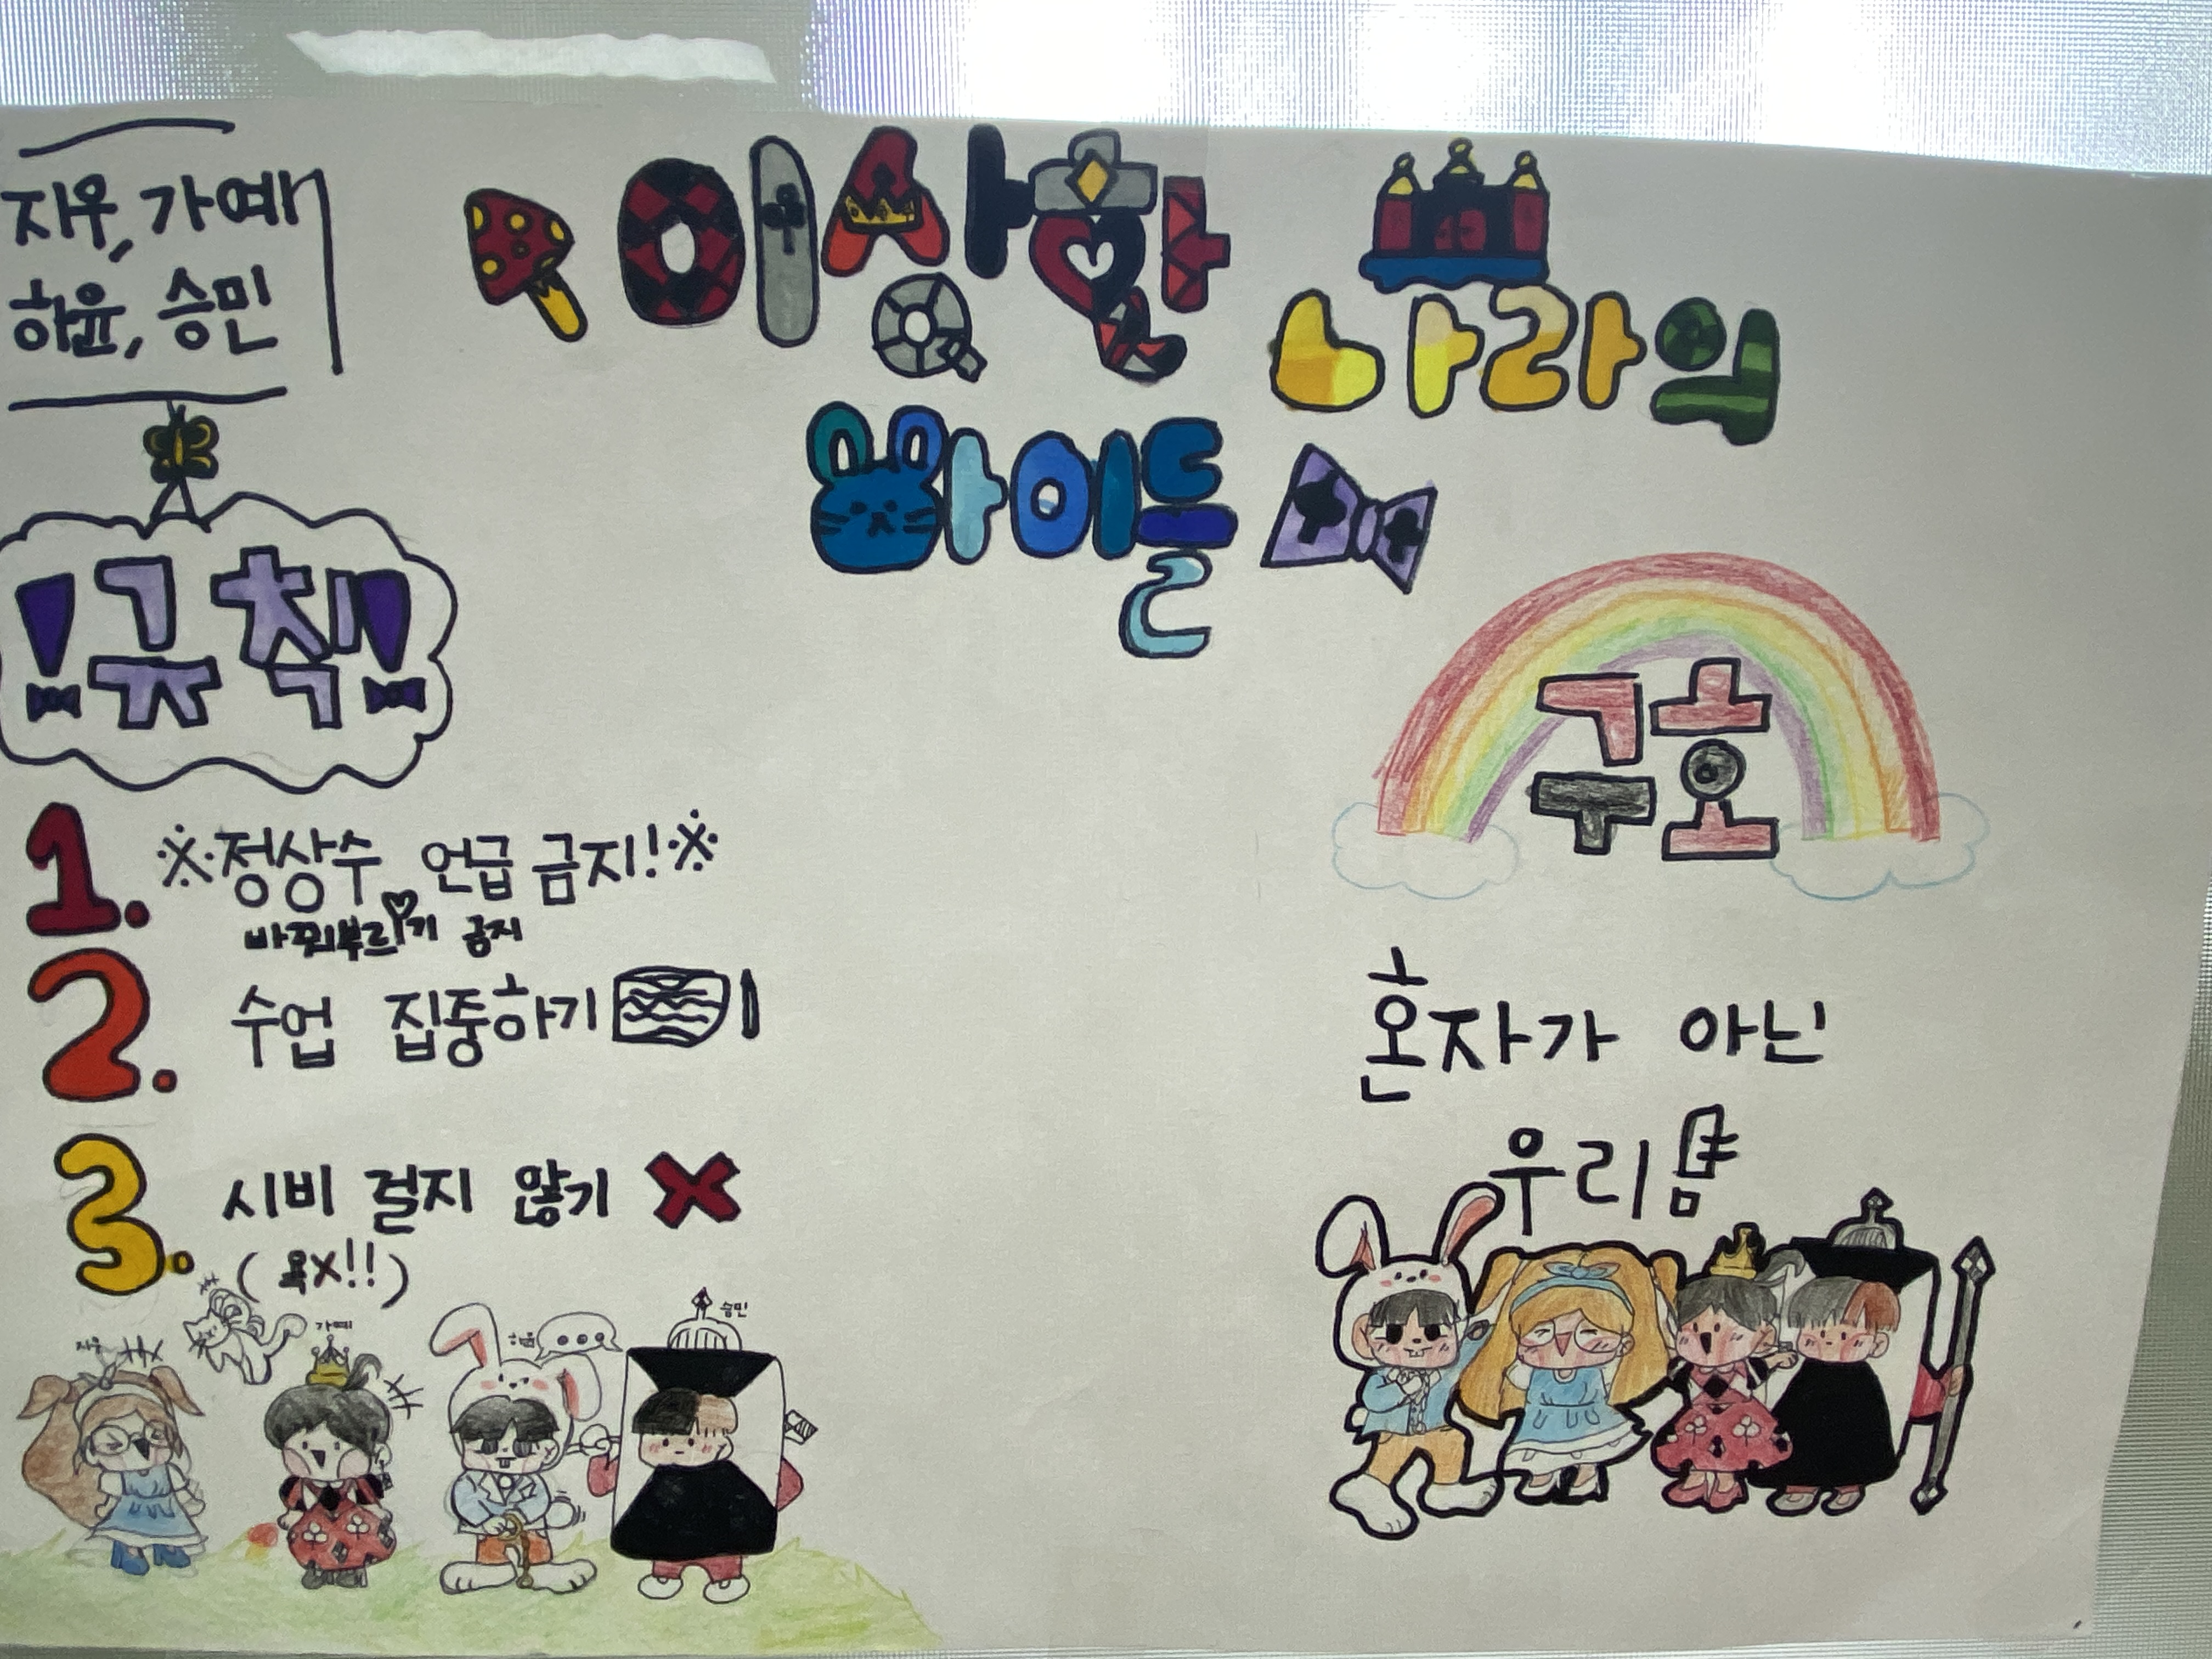 지우, 가예
하윤, 승민
이상한
나라의
아이들
!규칙!
1. ※정상수 언급 금지!※
바꿔부르기 금지
2. 수업 집중하기
3. 시비 걸지 않기 X
(욕X!!)
지우
가예
하윤
...
승민
구호
혼자가 아닌
우리